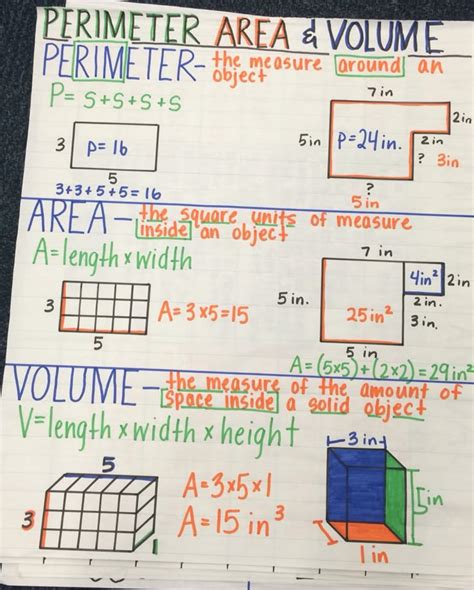 PERIMETER AREA & VOLUME
PERIMETER- the measure around an object
P= S+S+S+S
3
P=16
5
3+3+5+5=16
7 in
2in
5in
P=24in.
2in
? 3in
?
5in
AREA - the square units of measure inside an object
A=length x width
3
5
A=3x5=15
7 in
4in² 2in
2in.
5in.
25in²
3in.
5 in
A=(5x5)+(2x2)=29in²
VOLUME- the measure of the amount of space inside a solid object
V=length x width x height
5
3
1
A=3x5x1
A=15in³
3in
5in
1in